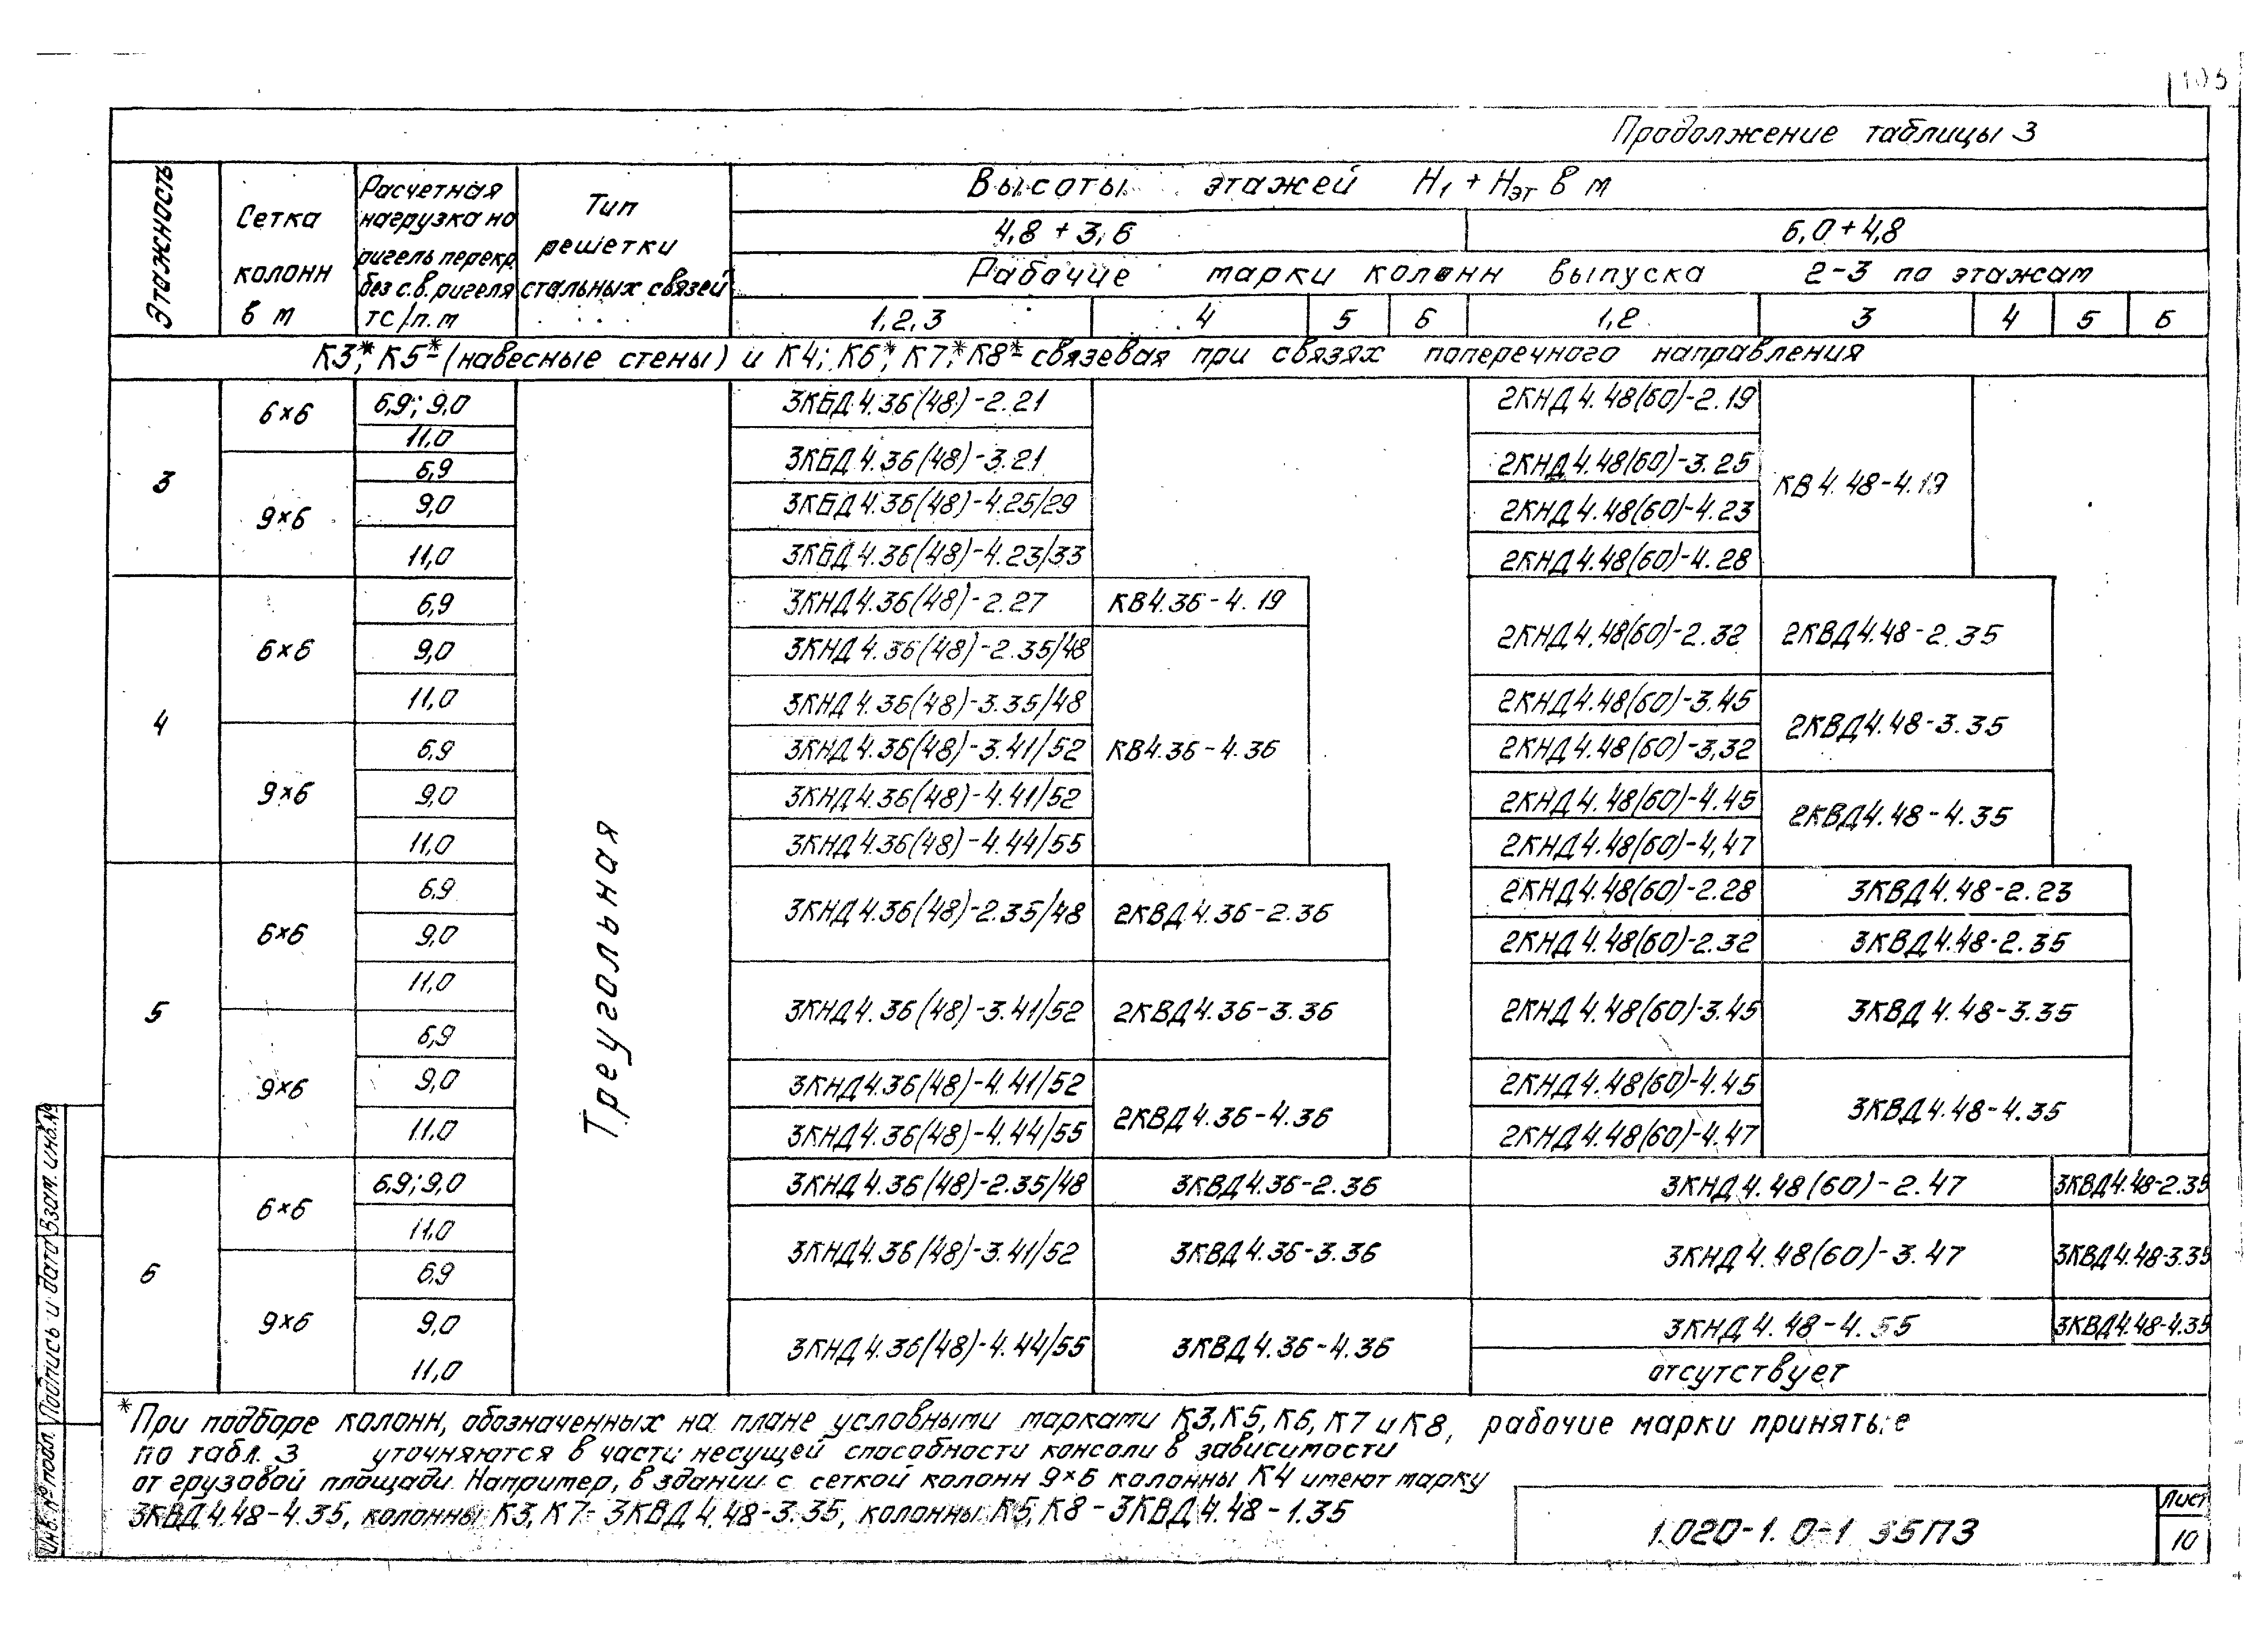 Продолжение таблицы 3
Этажность
Сетка колонн в м
Расчетная нагрузка на ригель перекр. без с.в. ригеля тс/п.м
Тип решетки стальных связей
Высоты этажей Н1 + Нэт в м
4,8 + 3,6 6,0 + 4,8
Рабочие марки колонн выпуска 2-3 по этажам
1,2,3 4 5 6 1,2 3 4 5 6
К3*, К5* (навесные стены) и К4; К6*, К7*, К8* связевая при связях поперечного направления
Треугольная
3
6×6
6,9; 9,0 3КБД4.36(48)-2.21 2КНД4.48(60)-2.19
11,0
3КБД4.36(48)-3.21 2КНД4.48(60)-3.25 КВ4.48-4.19
9×6
6,9
9,0 3КБД4.36(48)-4.25/29 2КНД4.48(60)-4.23
11,0 3КБД4.36(48)-4.23/33 2КНД4.48(60)-4.28
4
6×6
6,9 3КНД4.36(48)-2.27 КВ4.36-4.19
9,0 3КНД4.36(48)-2.35/48 2КНД4.48(60)-2.32 2КВД4.48-2.35
11,0 3КНД4.36(48)-3.35/48 2КНД4.48(60)-3.45 2КВД4.48-3.35
9×6
6,9 3КНД4.36(48)-3.41/52 КВ4.36-4.36 2КНД4.48(60)-3,32
9,0 3КНД4.36(48)-4.41/52 2КНД4.48(60)-4.45 2КВД4.48-4.35
11,0 3КНД4.36(48)-4.44/55 2КНД4.48(60)-4,47
5
6×6
6,9 3КНД4.36(48)-2.35/48 2КВД4.36-2.36 2КНД4.48(60)-2.28 3КВД4.48-2.23
9,0 2КНД4.48(60)-2.32 3КВД4.48-2.35
11,0 3КНД4.36(48)-3.41/52 2КВД4.36-3.36 2КНД4.48(60)-3.45 3КВД4.48-3.35
9×6
6,9
9,0 3КНД4.36(48)-4.41/52 2КВД4.36-4.36 2КНД4.48(60)-4.45 3КВД4.48-4.35
11.0 3КНД4.36(48)-4.44/55 2КНД4.48(60)-4.47
6
6×6
6,9; 9,0 3КНД4.36(48)-2.35/48 3КВД4.36-2.36 3КНД4.48(60)-2.47 3КВД4.48-2.35
11,0 3КНД4.36(48)-3.41/52 3КВД4.36-3.36 3КНД4.48(60)-3.47 3КВД4.48-3.35
9×6
6,9
9,0 3КНД4.36(48)-4.44/55 3КВД4.36-4.36 3КНД4.48-4.55 3КВД4.48-4.35
11,0 отсутствует
*При подборе колонн, обозначенных на плане условными марками К3, К5, К6, К7 и К8, рабочие марки принятые
по табл. 3 уточняются в части несущей способности консоли в зависимости
от грузовой площади. Например, в здании с сеткой колонн 9×6 колонны К4 имеют марку
3КВД4.48-4.35, колонны К3, К7- 3КВД4.48-3.35, колонны К5, К8 - 3КВД4.48-1.35
1.020-1. 0-1 35ПЗ
Лист
10
Инв. № подл. Подпись и дата Взам. инв. №